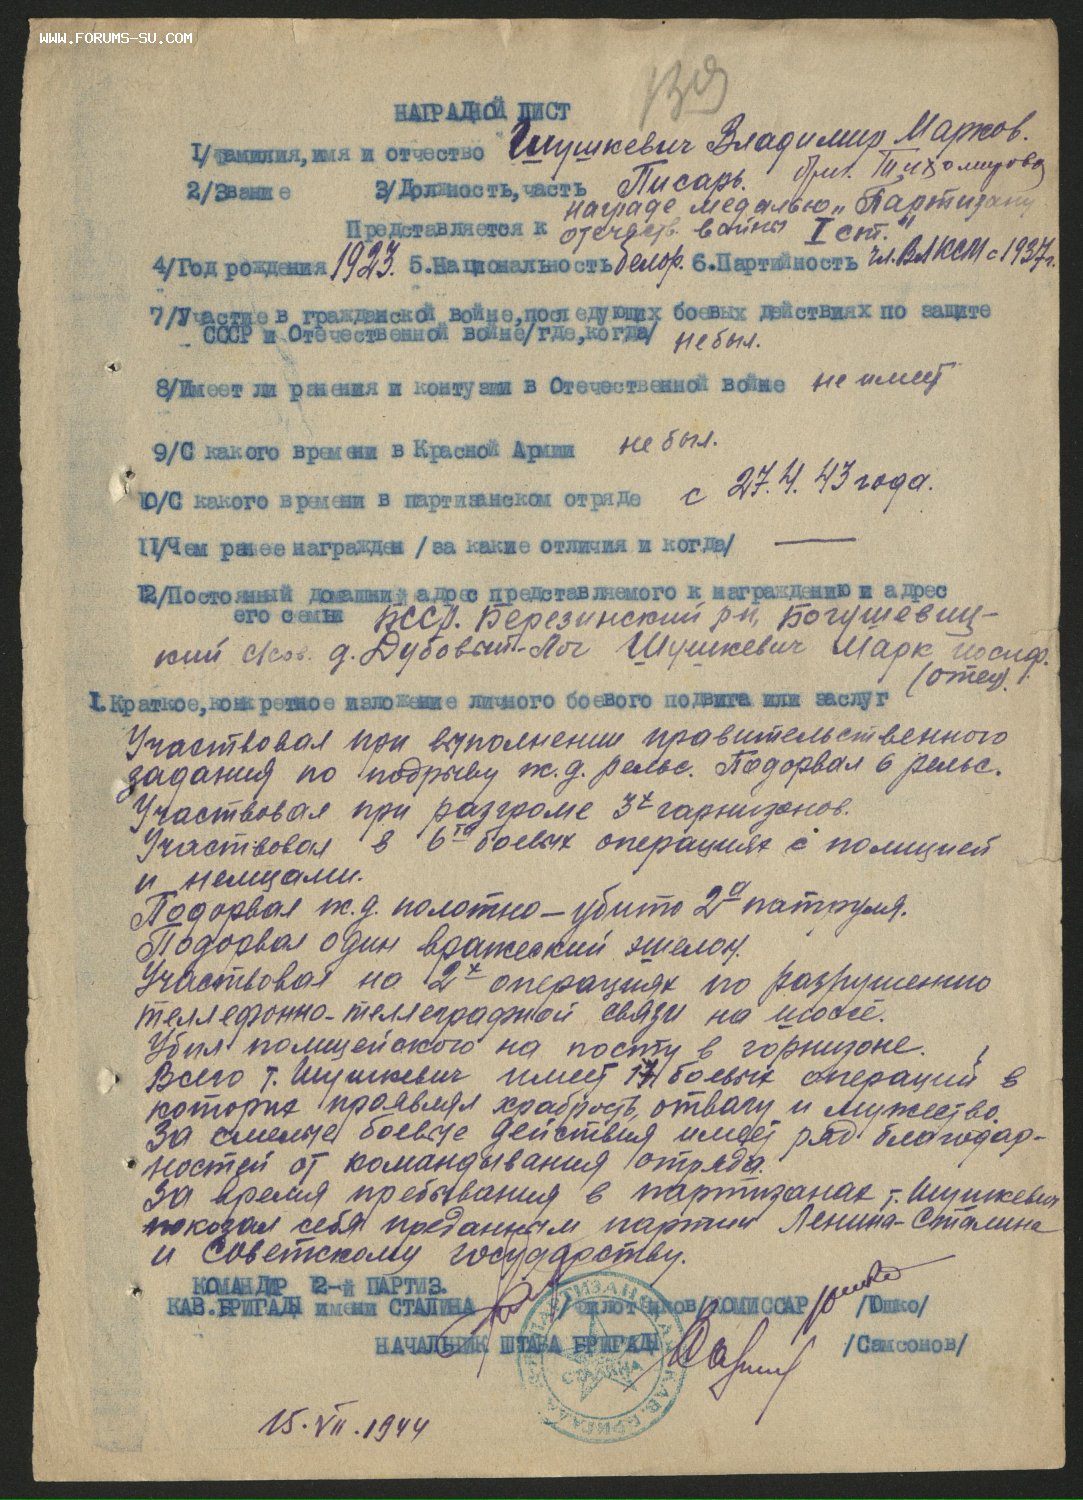 WWW.FORUMS-SU.COM
139
НАГРАДНОЙ ЛИСТ
1/Фамилия,имя и отчество Шушкевич Владимир Марков.
2/Звание 3/Должность,часть Писарь. Тихомирова
Представляется к награде медалью „Партизану
отечеств. войны I ст."
4/Год рождения 1923. 5.Национальность белор. 6.Партийность чл. ВЛКСМ с 1937г.
7/Участие в гражданской войне,последующих боевых действиях по защите
СССР и Отечественной войне/где,когда/ не был.
8/Имеет ли ранения и контузии в Отечественной войне не имеет
9/С какого времени в Красной Армии не был.
10/С какого времени в партизанском отряде с 27.4.43 года.
11/Чем ранее награжден /за какие отличия и когда/ —
12/Постоянный домашний адрес представляемого к награждению и адрес
его семьи БССР. Березинский р-н, Богушевиц-
кий с/сов. д. Дубовый-Лог Шушкевич Марк Иосиф.
(отец).
1.Краткое,конкретное изложение личного боевого подвига или заслуг
Участвовал при выполнении правительственного
задания по подрыву ж.д. рельс. Подорвал 6 рельс.
Участвовал при разгроме 3х гарнизонов.
Участвовал в 6ти боевых операциях с полицией
и немцами.
Подорвал ж.д. полотно – убито 2а патруля.
Подорвал один вражеский эшелон.
Участвовал на 2х операциях по разрушению
теллефонно-теллеграфной связи на шоссе.
Убил полицейского на посту в горнизоне.
Всего т. Шушкевич имеет 17 боевых операций в
которых проявлял храбрость, отвагу и мужество.
За смелые боевые действия имеет ряд благодар-
ностей от командывания отряда.
За время пребывания в партизанах т. Шушкевич
показал себя преданным партии Ленина-Сталина
и Советскому государству.
КОМАНДИР 2-й ПАРТИЗ.
КАВ.БРИГАДЫ имени СТАЛИНА /Филотчиков/ КОМИССАР /Юшко/
НАЧАЛЬНИК ШТАБА БРИГАДЫ /Самсонов/
ПАРТИЗАНСКАЯ КАВ. БРИГАДА
СТАЛИНА
15.VII.1944